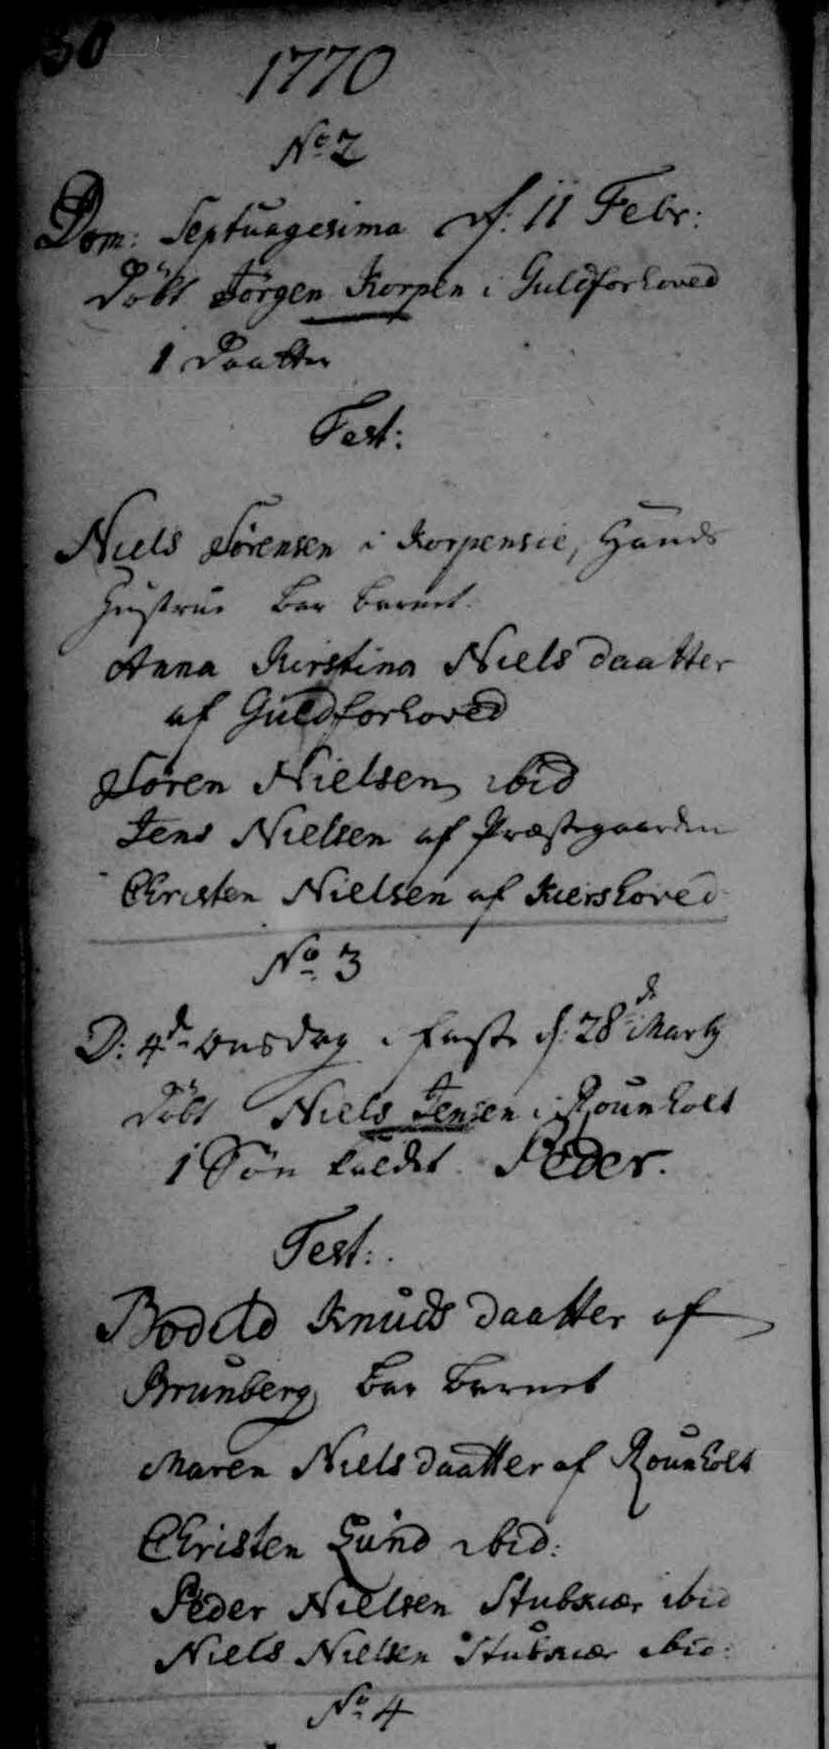 50
1770
No 2
Dom: Septuagesima d: 11 Febr:
döbt Jörgen Korpen i Guldforhoved
1 Daatter
Test:
Niels Sörensen i Korpensie, Hans
Hustrue bar barnet.
Anna Kirstina Niels daatter
af Guldforhoved
Sören Nielsen ibid
Jens Nielsen af Præstegaarden
Christen Nielsen af Kiershoved
No 3
D: 4de Onsdag i Faste d: 28de Martij
döbt Niels Jensen i Rounholt
1 Sön kaldet Peder.
Test:
Bodild Knuds daatter af
Brunberg bar barnet
Maren Niels daatter af Rounholt
Christen Lund ibid:
Peder Nielsen Stubkiær ibid
Niels Nielsen Stubkiær ibid:
No 4